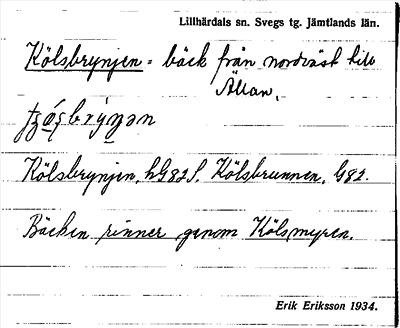 Lillhärdals sn. Svegs tg. Jämtlands län.
Kölsbrynjen = bäck från nordväst till
Ällan.
Kölsbrynjen, hG82f, Kölsbrunnen, G82.
Bäcken rinner genom Kölsmyren.
Erik Eriksson 1934.